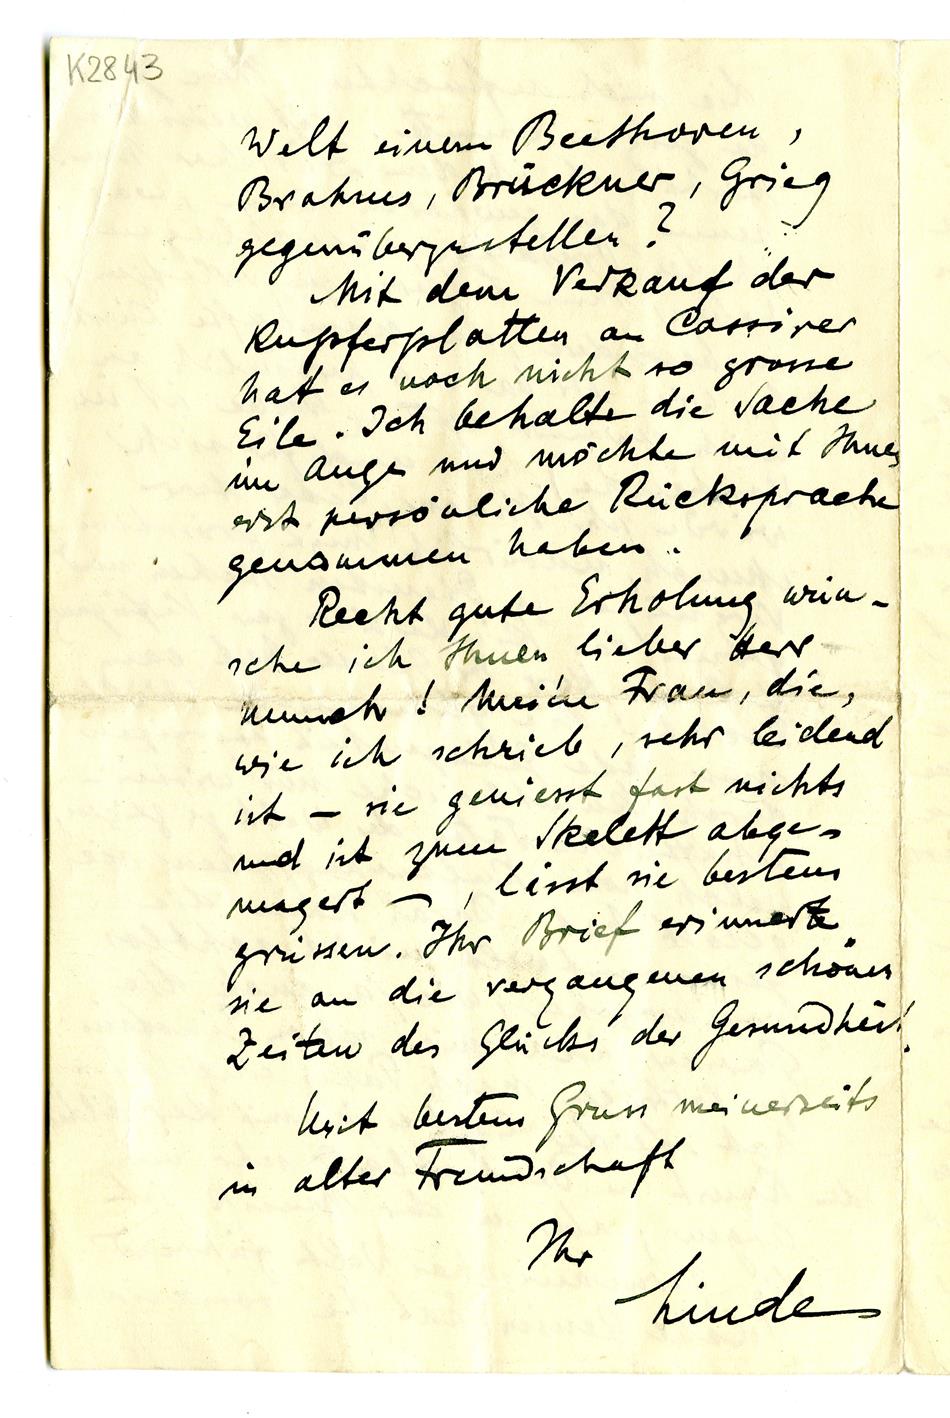 K2843
Welt einem Beethoven,
Brahms, Brückner, Grieg
gegenüberzustellen?
Mit dem Verkauf der
Kupferplatten an Cassirer
hat es noch nicht so grosse
Eile. Ich behalte die Sache
im Auge und möchte mit Ihnen
erst persönliche Rücksprache
genommen haben.
Recht gute Erholung wün-
sche ich Ihnen lieber Herr
Munch! Meine Frau, die,
wie ich schrieb, sehr leidend
ist – sie geniesst fast nichts
und ist zum Skelett abge-
magert –, lässt sie bestens
grüssen. Ihr Brief erinnerte
sie an die vergangenen schönen
Zeiten des Glücks der Gesundheit!
Mit bestem Gruss meinerseits
in alter Freundschaft
Ihr
Linde